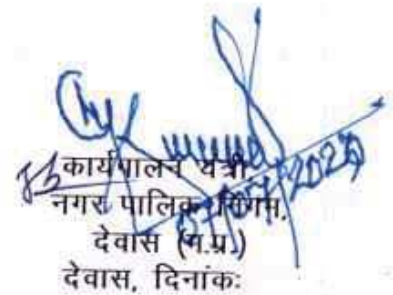 कार्यपालन यंत्री
नगर पालिक निगम,
देवास (म.प्र.)
देवास, दिनांकः